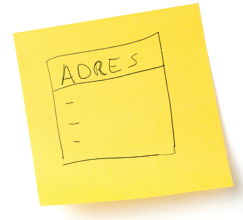 ADRES
-
-
-